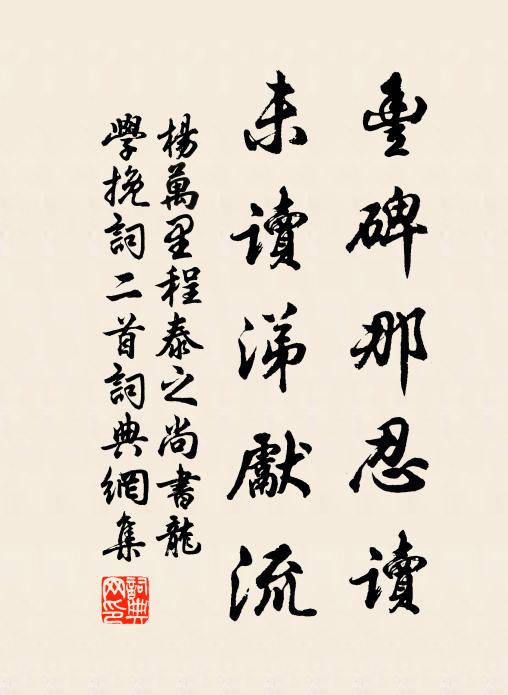 豊碑那忍讀
未讀涕獻流
楊萬里程泰之尚書龍
學挽詞二首詞典網集